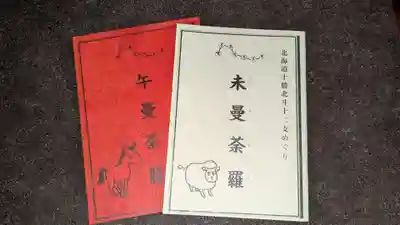 北海道十勝北斗十二支めぐり
未曼荼羅
午曼荼羅